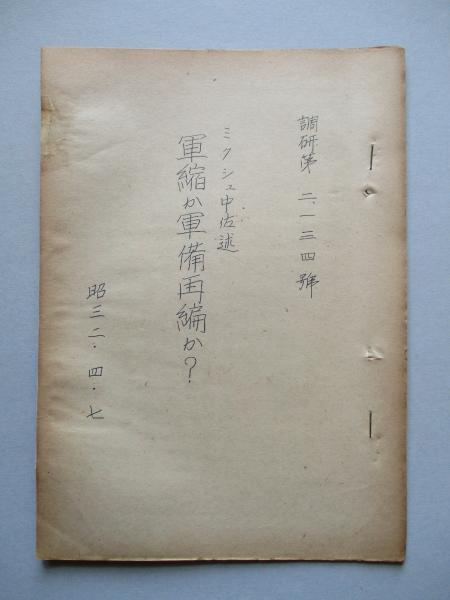 調研第二、一三四號
ミクシュ中佐述
軍縮か軍備再編か?
昭三二・四・七